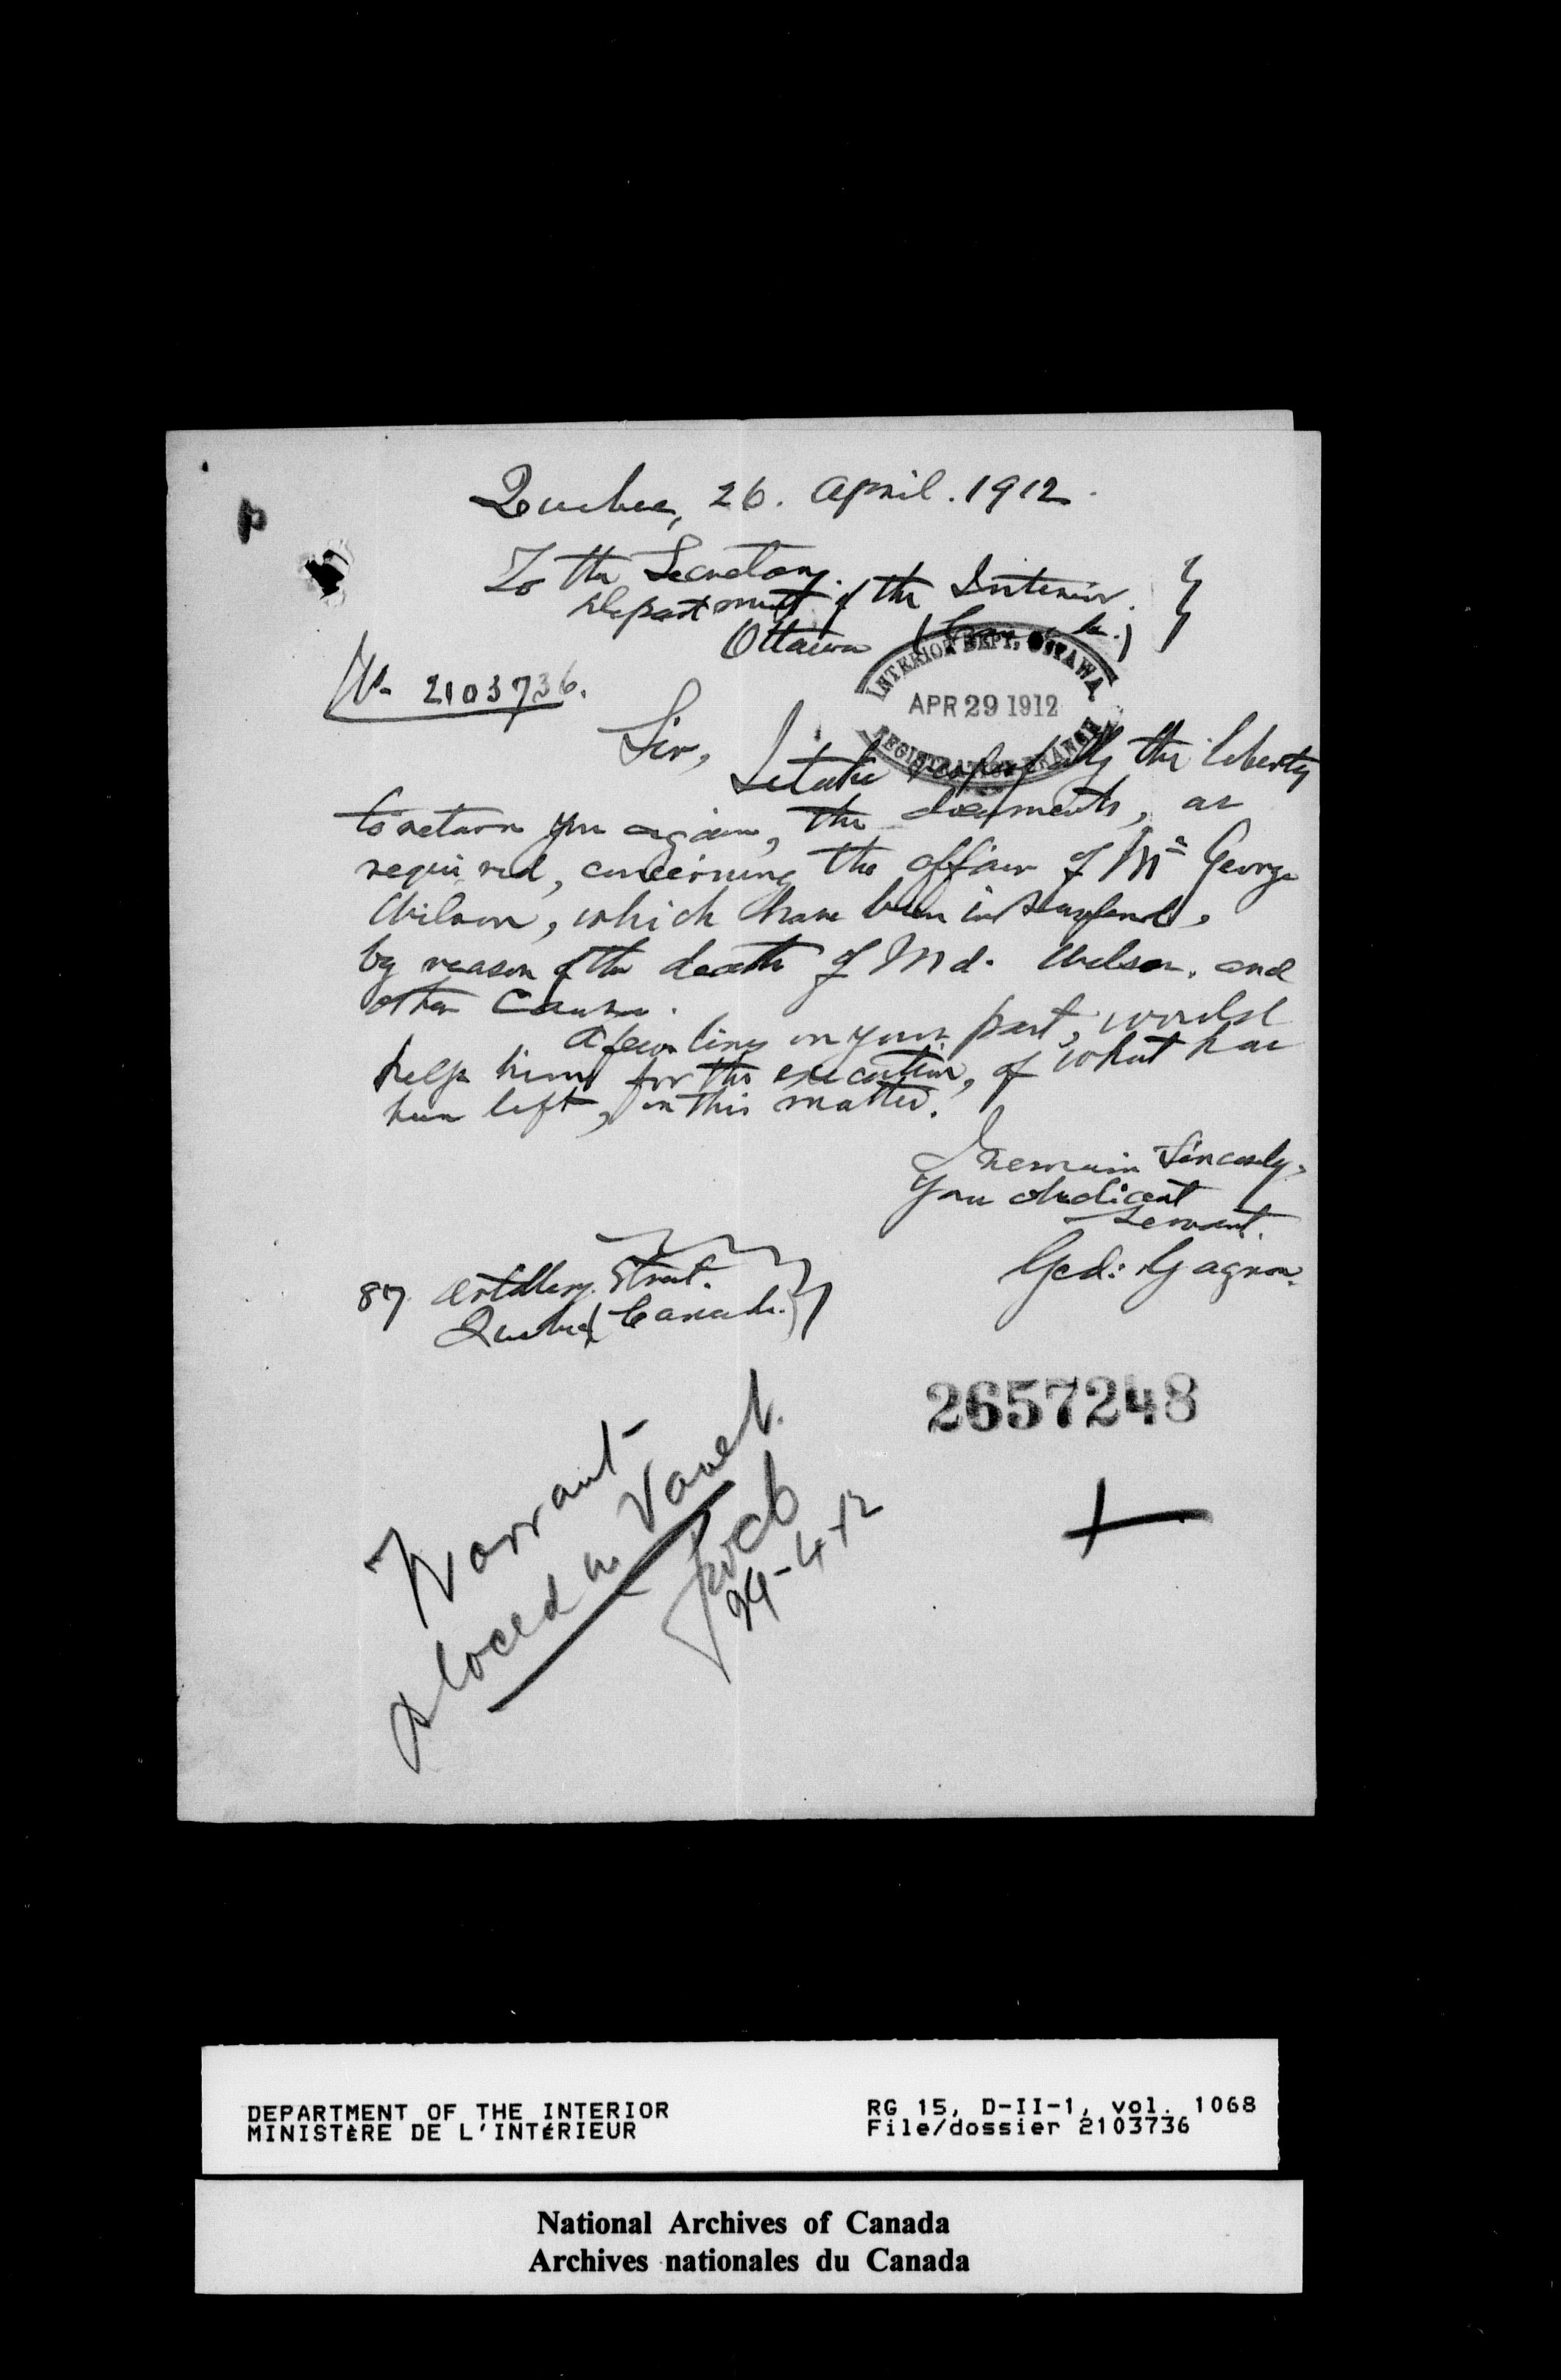 p
Quebec, 26. April. 1912.
To the Secretary.
Department of the Interior.
Ottawa (Canada.)
No. 2103736.
INTERIOR DEPT. OTTAWA
APR 29 1912
REGISTRATION BRANCH
Sir,
I take respectfully the liberty
to return you again, the documents, as
required, concerning the affair of Mr George
Wilson, which have been in
by reason of the death of Md. Wilson. and
other cause.
A few lines on your part, would
help him for the execution, of what has
been left, in this matter.
I remain Sincerely,
your obedient
servant.
Ged: Gagnon.
87 Artillery. Street.
Quebec (Canada.)
2657248
Warrant
placed in Vault.
29-4-12
DEPARTMENT OF THE INTERIOR
MINISTÈRE DE L'INTÉRIEUR
RG 15, D-II-1, vol. 1068
File/dossier 2103736
National Archives of Canada
Archives nationales du Canada